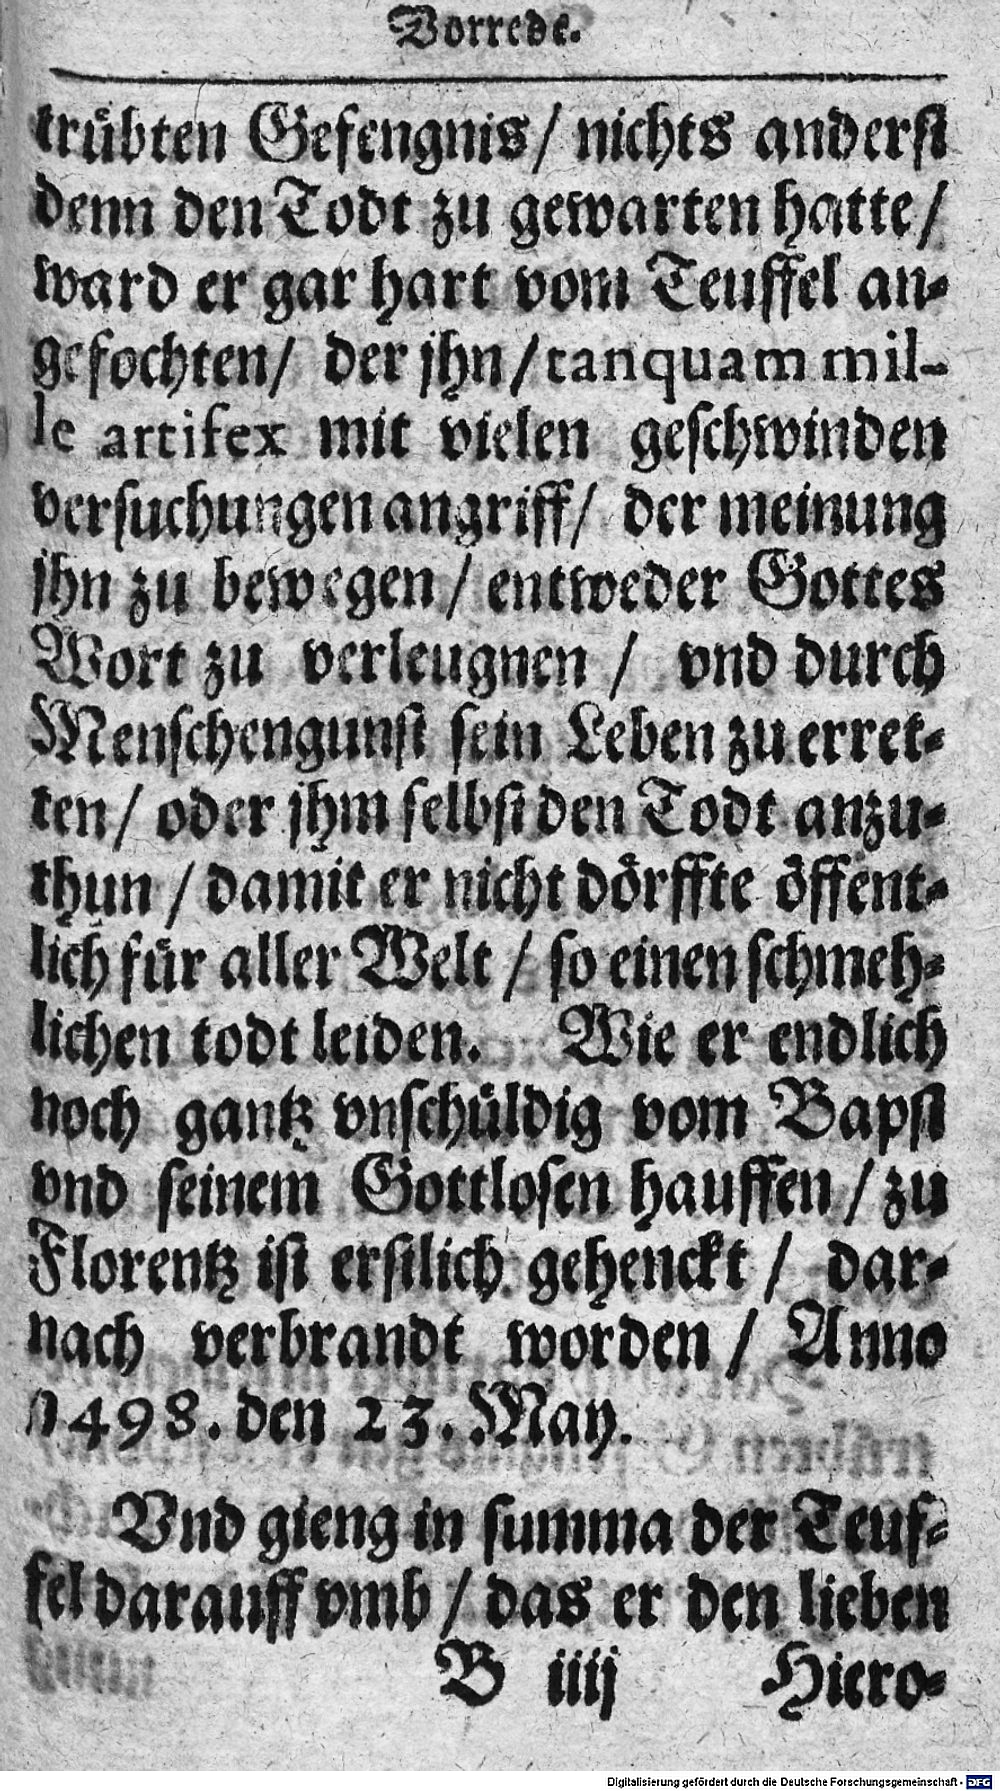 Vorrede.
trübten Gefengnis/ nichts anderst
denn den Todt zu gewarten hatte/
ward er gar hart vom Teuffel an-
gefochten/ der jhn/ tanquam mil-
le artifex mit vielen geschwinden
versuchungen angriff/ der meinung
jhn zu bewegen/ entweder Gottes
Wort zu verleugnen/ vnd durch
Menschengunst sein Leben zu erret-
ten/ oder jhm selbst den Todt anzu-
thun/ damit er nicht dörffte öffent-
lich für aller Welt/ so einen schmeh-
lichen todt leiden. Wie er endlich
noch gantz vnschüldig vom Bapst
vnd seinem Gottlosen hauffen/ zu
Florentz ist erstlich gehenckt/ dar-
nach verbrandt worden/ Anno
1498. den 23. May.
Vnd gieng in summa der Teuf-
fel darauff vmb/ das er den lieben
B iiij Hiero-
Digitalisierung gefördert durch die Deutsche Forschungsgemeinschaft - DFG